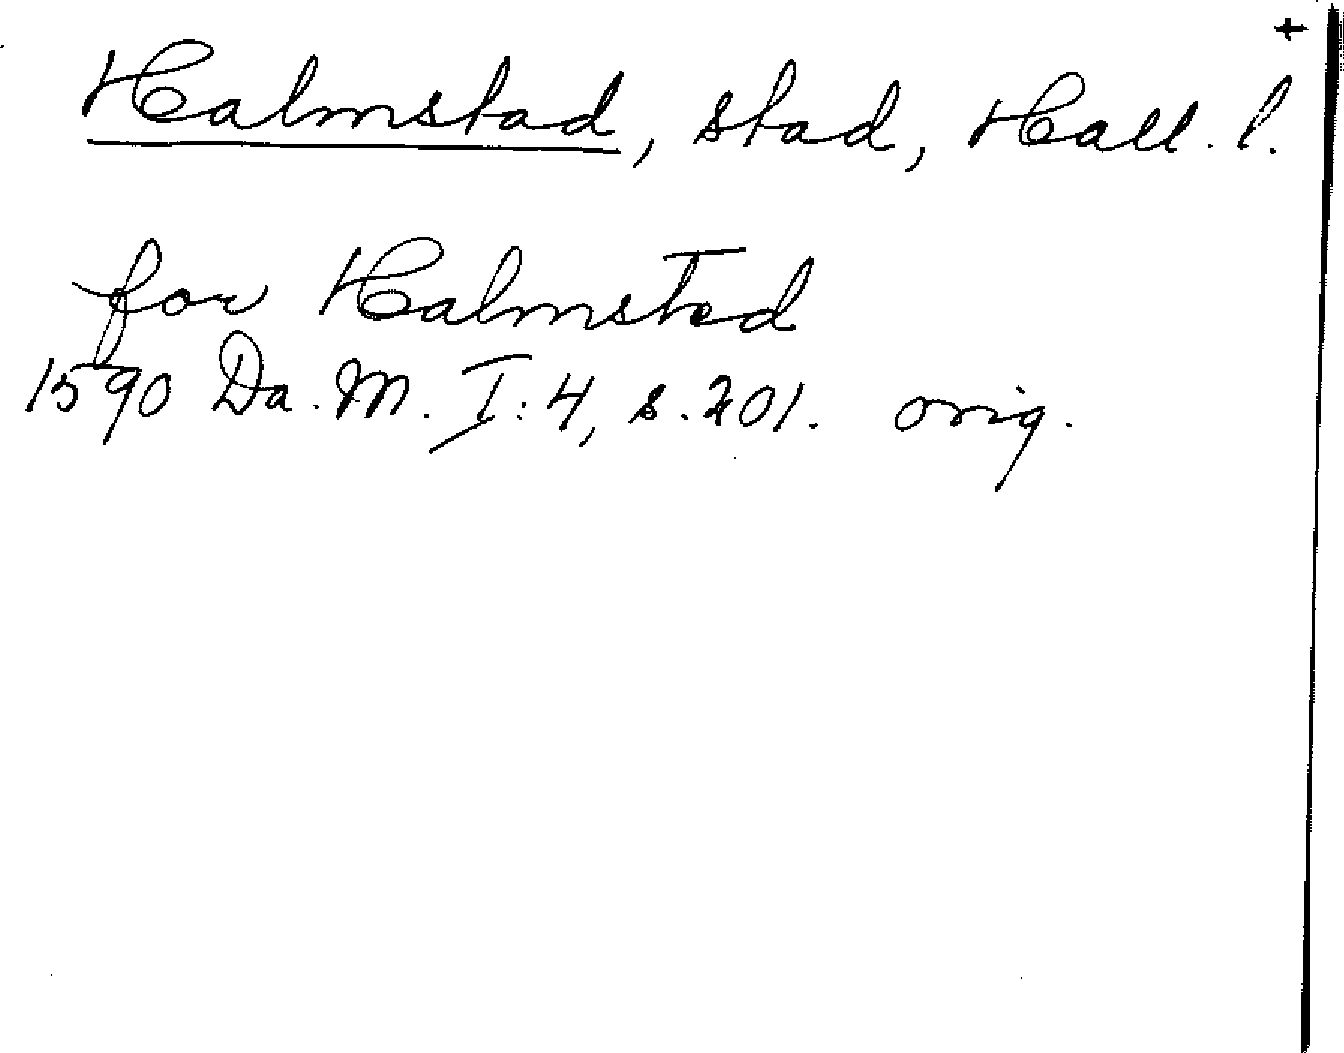 +
Halmstad, stad, Hall. l.
for Halmsted
1590 Da. M. I:4, s. 201. orig.